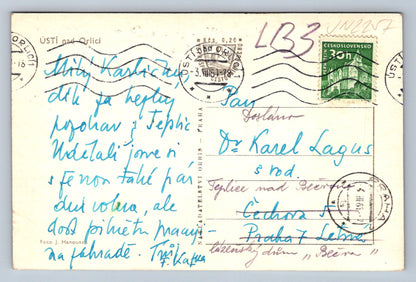 ÚSTÍ nad Orlicí
LB3
ČESKOSLOVENSKO
30h
ÚSTÍ nad ORLICÍ 1
-3.VIII.61-18
Milý Karlíčku,
dík za hezký
pozdrav z Teplic
Udělali jsme si
s ženou také pár
dní volna, ale
dost pilně
na zahradě. Tvůj
Pan
Dosláno
Dr Karel Lagus
s rod.
Teplice nad Bečvou
Čechova
Praha 7 Letná
lázeňský dům „Bečva"
PRAHA
NAKLADATELSTVÍ ORBIS - PRAHA
Foto J.